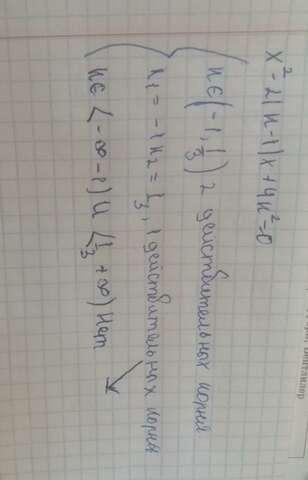 x² - 2(n-1)x + 4n² = 0
n ∈ (-1, 1/3) 2 действительных корня
n₁ = -1 n₂ = 1/3, 1 действительных корня
n ∈ (-∞ -1) U (1/3 +∞) Нет